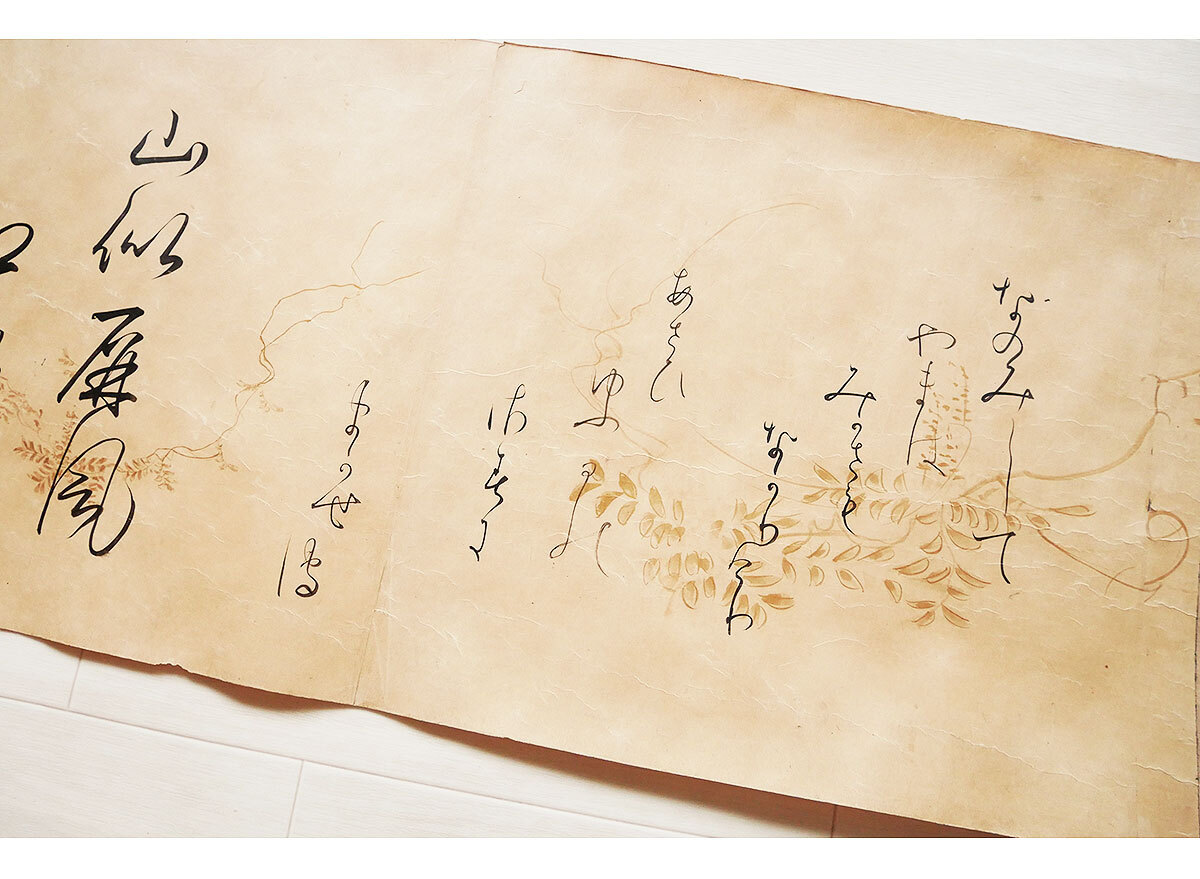 なのみして
やまは
みかさも
なかりけり
あさひ
ゆふひの
さすに
まかせて
山似屏風